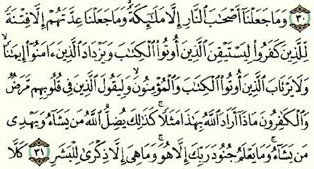 ٣٠ وَمَا جَعَلْنَا أَصْحَٰبَ النَّارِ إِلَّا مَلَٰٓئِكَةً وَمَا جَعَلْنَا عِدَّتَهُمْ إِلَّا فِتْنَةً
لِّلَّذِينَ كَفَرُوا لِيَسْتَيْقِنَ الَّذِينَ أُوتُوا الْكِتَٰبَ وَيَزْدَادَ الَّذِينَ ءَامَنُوا إِيمَٰنًا
وَلَا يَرْتَابَ الَّذِينَ أُوتُوا الْكِتَٰبَ وَالْمُؤْمِنُونَ وَلِيَقُولَ الَّذِينَ فِي قُلُوبِهِم مَّرَضٌ
وَالْكَٰفِرُونَ مَاذَا أَرَادَ اللَّهُ بِهَٰذَا مَثَلًا كَذَٰلِكَ يُضِلُّ اللَّهُ مَن يَشَاءُ وَيَهْدِي
مَن يَشَاءُ وَمَا يَعْلَمُ جُنُودَ رَبِّكَ إِلَّا هُوَ وَمَا هِيَ إِلَّا ذِكْرَىٰ لِلْبَشَرِ ٣١ كَلَّا